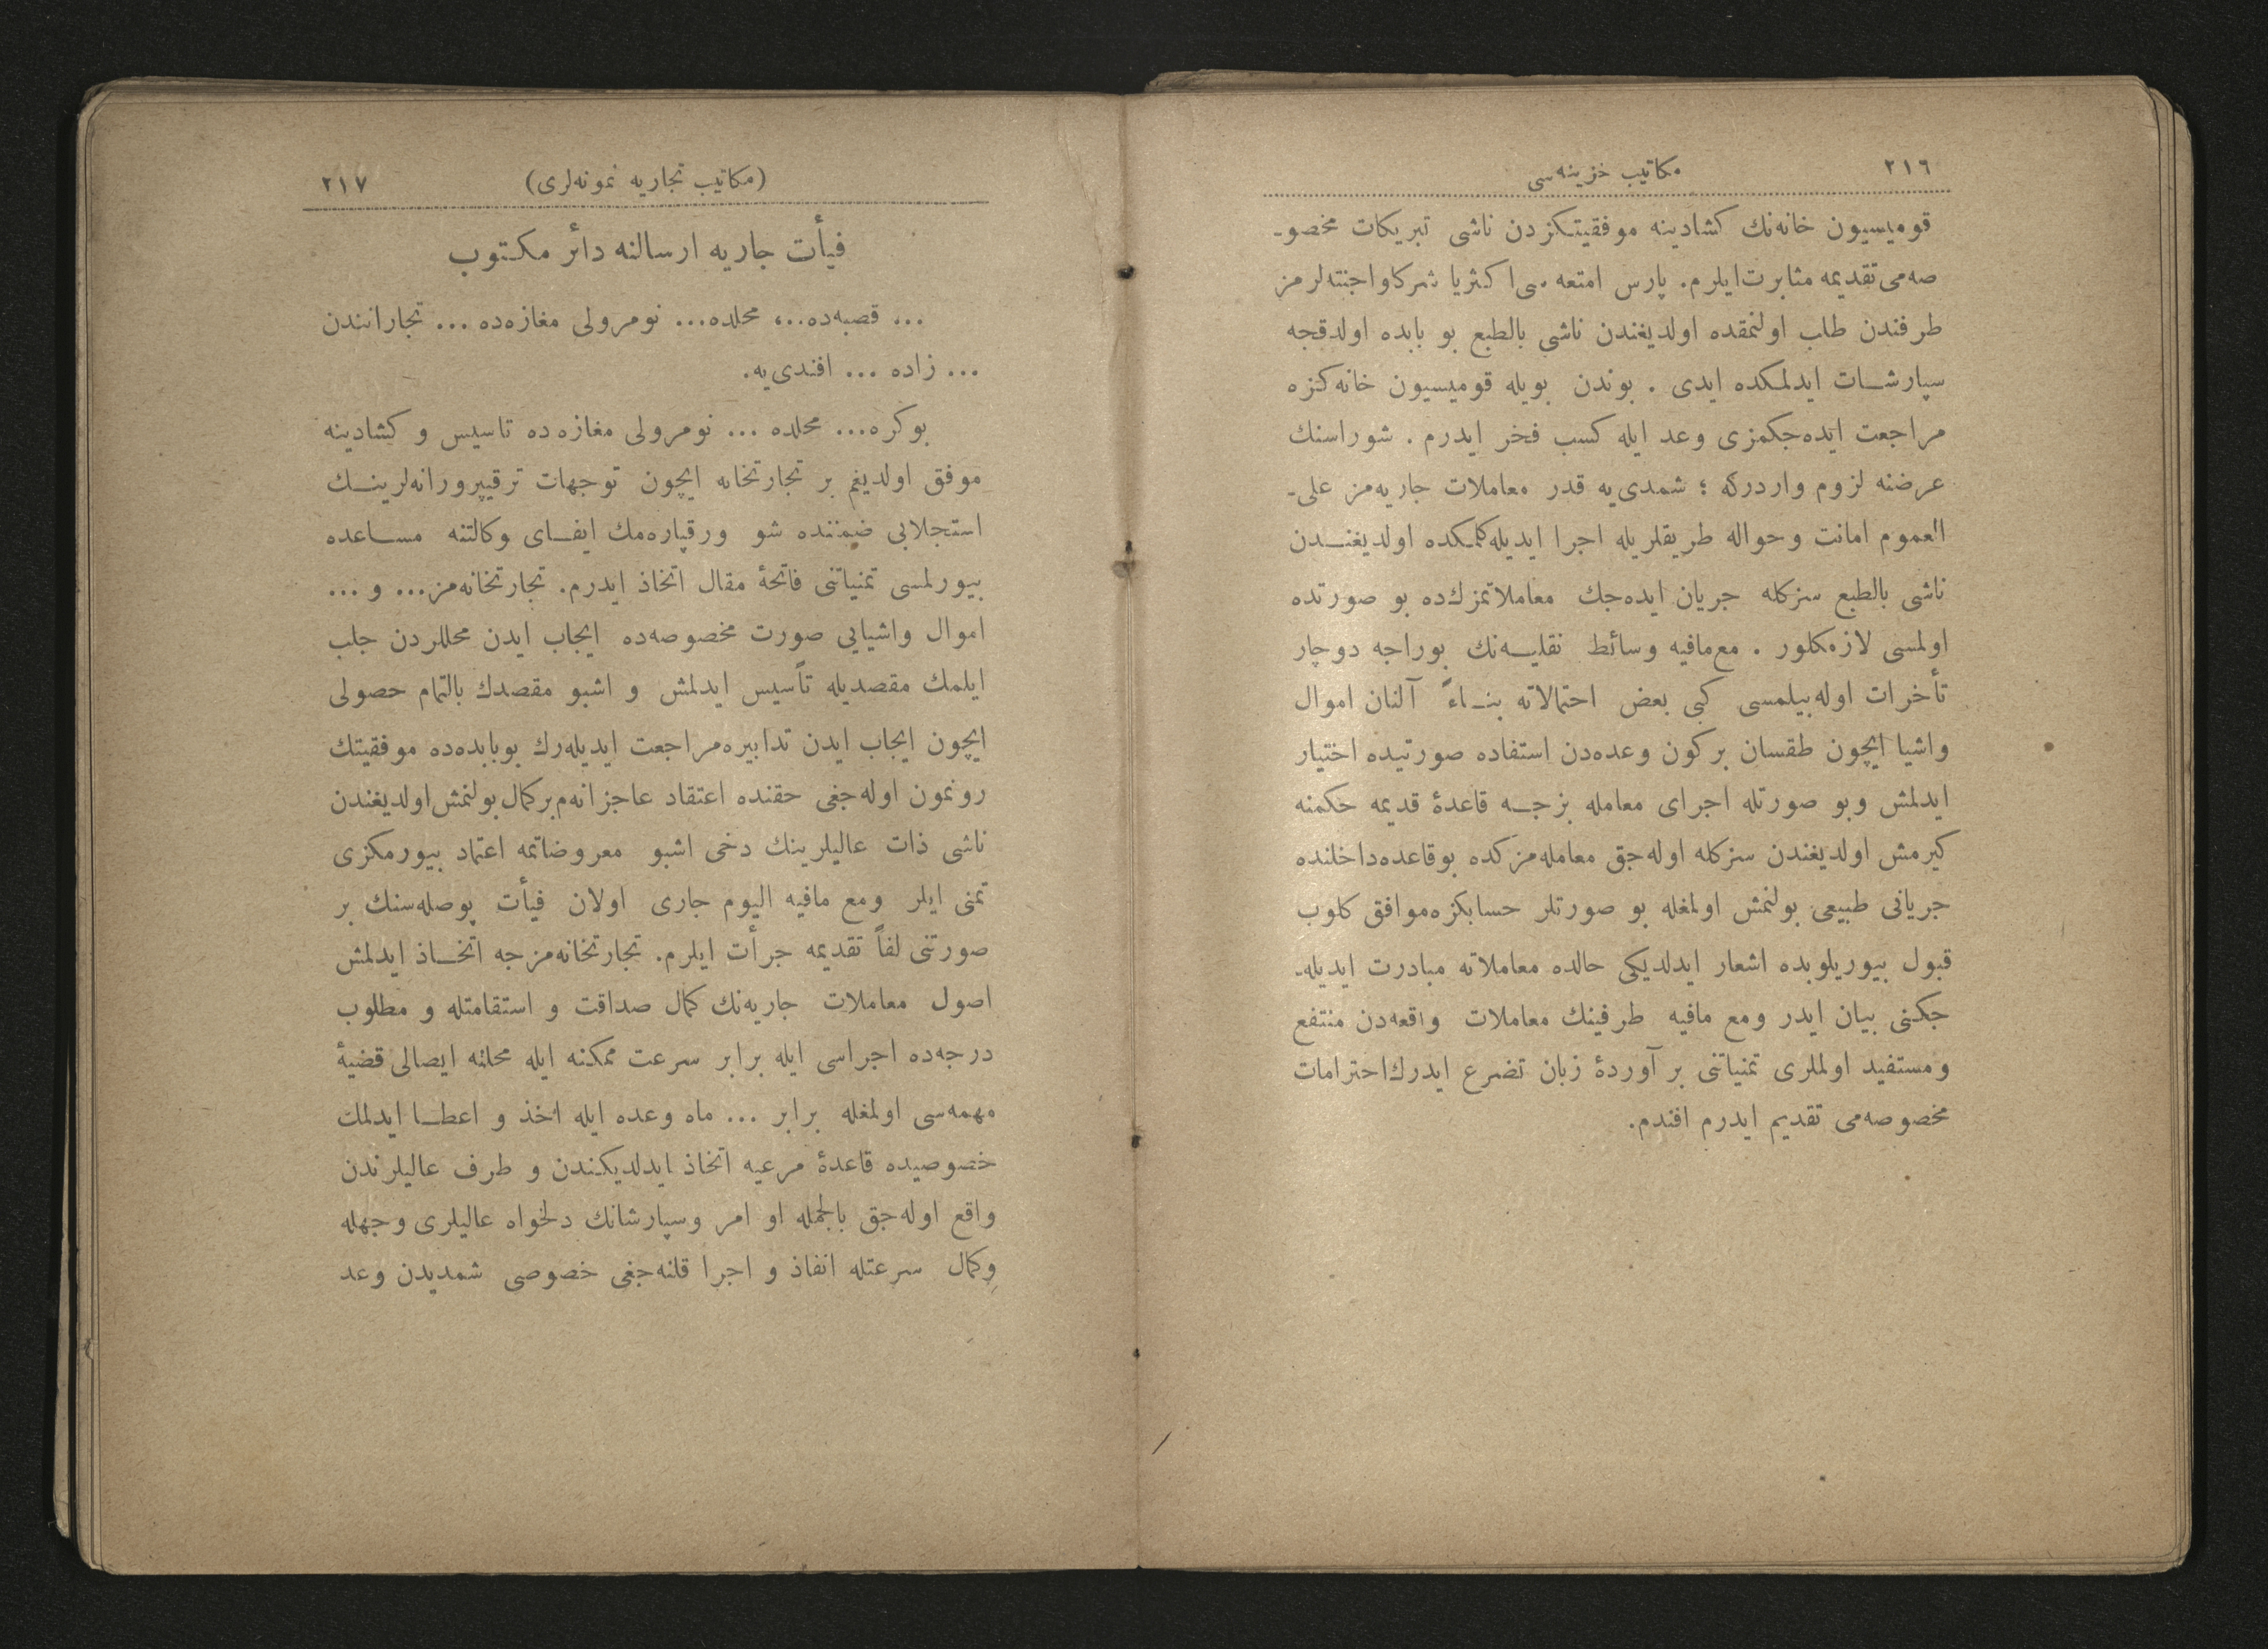 ٢١٦
مكاتيب خزينه‌سى
قوميسيون خانه‌نك كشادينه موفقيتكزدن ناشى تبريكات مخصو-
صه‌مى تقديمه مثابرت ايلرم. پارس امتعه سى اكثريا شركا واجنته‌لرمز
طرفندن طلب اولنمقده اولديغندن ناشى بالطبع بو بابده اولدقجه
سپارشات ايدلمكده ايدى . بوندن بويله قوميسيون خانه كزه
مراجعت ايده‌جكمزى وعد ايله كسب فخر ايدرم . شوراسنك
عرضنه لزوم واردركه ؛ شمدى‌يه قدر معاملات جاريه‌مز على-
العموم امانت وحواله طريقلريله اجرا ايديله‌كلمكده اولديغندن
ناشى بالطبع سزكله جريان ايده‌جك معاملاتمزك‌ده بو صورتده
اولمسى لازمكلور . مع‌مافيه وسائط نقليه‌نك بوراجه دوچار
تأخرات اوله‌بيلمسى كبى بعض احتمالاته بناءً آلنان اموال
واشيا ايچون طقسان بر كون وعده‌دن استفاده صورتيده اختيار
ايدلمش وبو صورتله اجراى معامله بزجه قاعدهٔ قديمه حكمنه
كيرمش اولديغندن سزكله اوله‌جق معامله‌مزكده بوقاعده‌داخلنده
جريانى طبيعى بولنمش اولمغله بو صورتلر حسابكزه‌موافق كلوب
قبول بيوريلوبده اشعار ايدلديكى حالده معاملاته مبادرت ايديله-
جكنى بيان ايدر ومع مافيه طرفينك معاملات واقعه‌دن منتفع
ومستفيد اولملرى تمنياتنى بر آوردهٔ زبان تضرع ايدرك‌احترامات
مخصوصه‌مى تقديم ايدرم افندم.
(مكاتيب تجاريه نمونه‌لرى)
٢١٧
فيأت جاريه ارسالنه دائر مكتوب
... قصبه‌ده...، محلده... نومرولى مغازه‌ده ... تجارانندن
... زاده ... افندى‌يه.
بوكره... محلده ... نومرولى مغازه ده تاسيس و كشادينه
موفق اولديغم بر تجارتخانه ايچون توجهات ترقيپرورانه‌لرينك
استجلابى ضمننده شو ورقپاره‌مك ايفاى وكالتنه مساعده
بيورلمسى تمنياتنى فاتحهٔ مقال اتخاذ ايدرم. تجارتخانه‌مز... و ...
اموال واشيايى صورت مخصوصه‌ده ايجاب ايدن محللردن جلب
ايلمك مقصديله تأسيس ايدلمش و اشبو مقصدك بالتمام حصولى
ايچون ايجاب ايدن تدابيره‌مراجعت ايديله‌رك بوبابده‌ده موفقيتك
رونمون اوله‌جغى حقنده اعتقاد عاجزانه‌م‌بركمال بولنمش‌اولديغندن
ناشى ذات عاليلرينك دخى اشبو معروضاتمه اعتماد بيورمكزى
تمنى ايلر ومع مافيه اليوم جارى اولان فيأت پوصله‌سنك بر
صورتنى لفاً تقديمه جرأت ايلرم. تجارتخانه‌مزجه اتخاذ ايدلمش
اصول معاملات جاريه‌نك كمال صداقت و استقامتله و مطلوب
درجه‌ده اجراسى ايله برابر سرعت ممكنه ايله محلنه ايصالى قضيهٔ
مهمه‌سى اولمغله برابر ... ماه وعده ايله اخذ و اعطا ايدلمك
خصوصيده قاعدهٔ مرعيه اتخاذ ايدلديكندن و طرف عاليلرندن
واقع اوله‌جق بالجمله او امر وسپارشاتك دلخواه عاليلرى وجهله
وكمال سرعتله انفاذ و اجرا قلنه‌جغى خصوصى شمديدن وعد